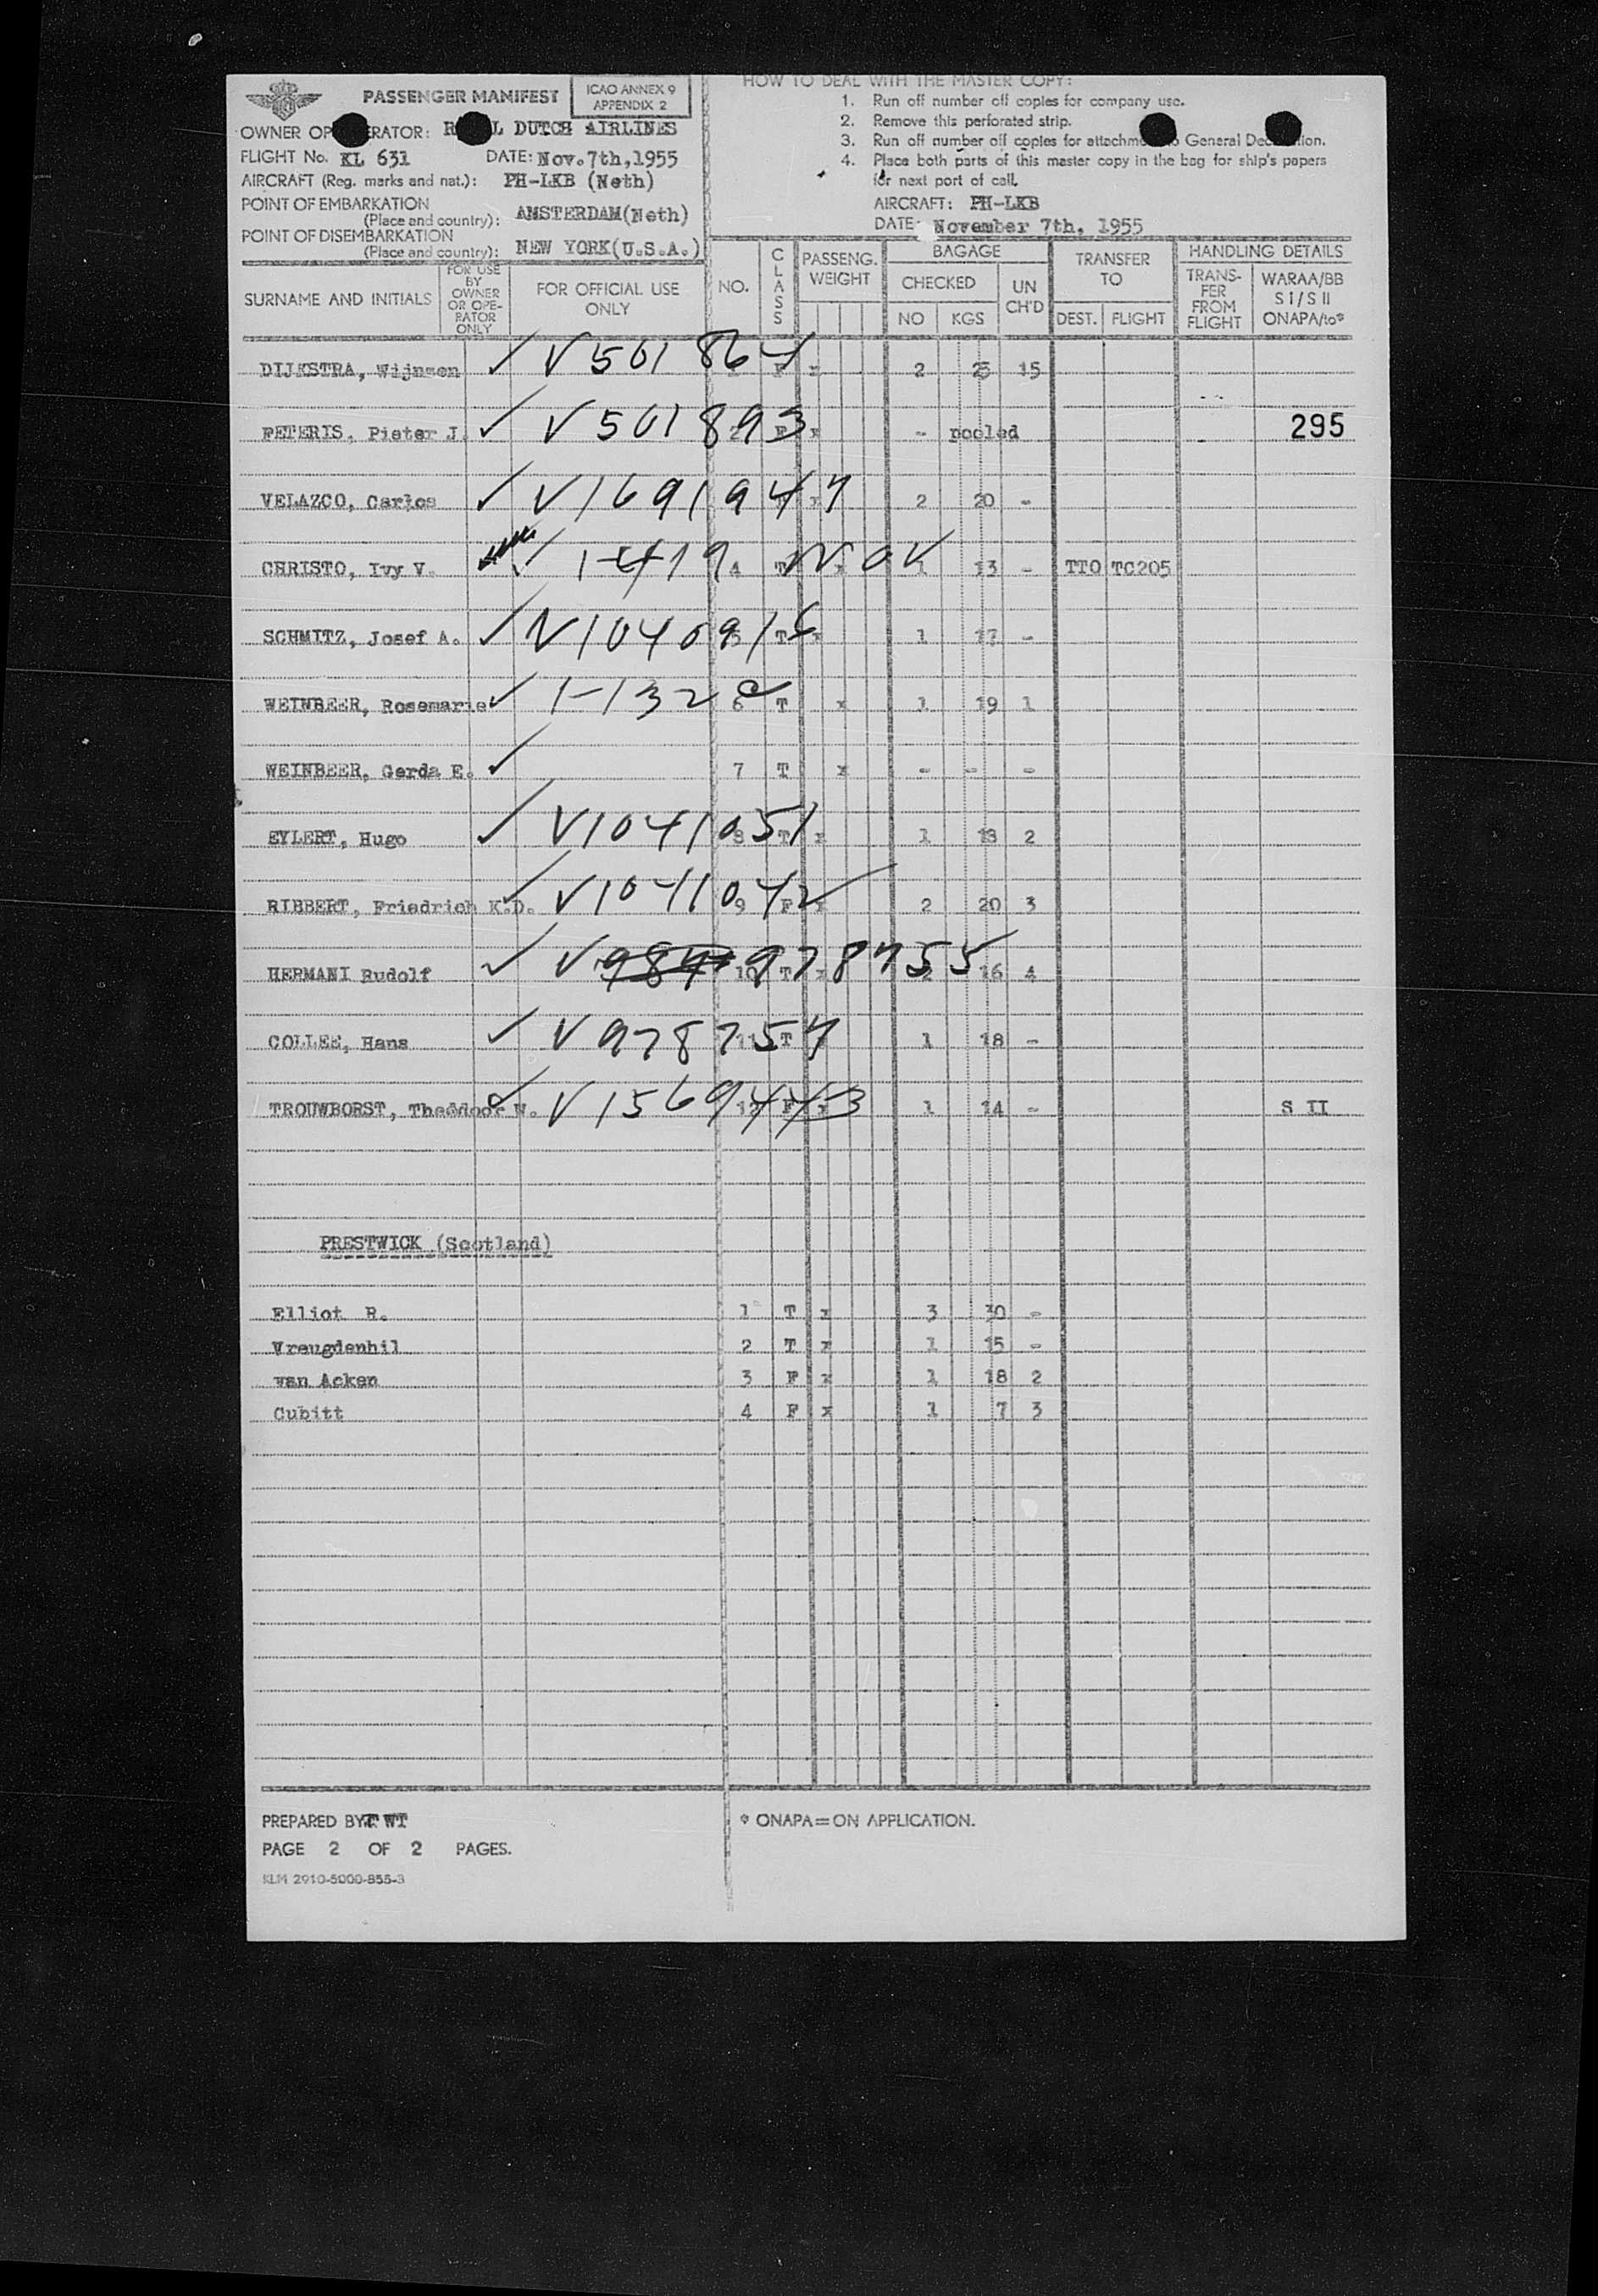 PASSENGER MANIFEST
ICAO ANNEX 9
APPENDIX 2
OWNER OP ERATOR: R L DUTCH AIRLINES
FLIGHT No. KL 631 DATE: Nov. 7th, 1955
AIRCRAFT (Reg. marks and nat.): PH-LKB (Neth)
POINT OF EMBARKATION
(Place and country): AMSTERDAM(Neth)
POINT OF DISEMBARKATION
(Place and country): NEW YORK(U.S.A.)
HOW TO DEAL WITH THE MASTER COPY:
1. Run off number off copies for company use.
2. Remove this perforated strip.
3. Run off number off copies for attachme o General Dec tion.
4. Place both parts of this master copy in the bag for ship's papers
for next port of call.
AIRCRAFT: PH-LKB
DATE: November 7th, 1955
SURNAME AND INITIALS
FOR USE
BY
OWNER
OR OPE-
RATOR
ONLY
FOR OFFICIAL USE
ONLY
NO.
CLASS
PASSENG.
WEIGHT
BAGAGE
CHECKED
NO KGS
UN
CH'D
TRANSFER
TO
DEST. FLIGHT
HANDLING DETAILS
TRANS-
FER
FROM
FLIGHT
WARAA/BB
S I / S II
ONAPA/to*
DIJKSTRA, Wijnsen ✓ V501864 F x 2 25 15
PETERIS, Pieter J. ✓ V501893 2 F x - pooled 295
VELAZCO, Carlos ✓ V1691947 x 2 20 -
CHRISTO, Ivy V. ✓ 1-419 4 T x 1 13 - TTO TC205
SCHMITZ, Josef A. ✓ V1040916 5 T x 1 17 -
WEINBEER, Rosemarie ✓ 1-1322 6 T x 1 19 1
WEINBEER, Gerda E. ✓ 7 T x - - -
EYLERT, Hugo ✓ V1041051 8 T x 1 13 2
RIBBERT, Friedrich K.D. ✓ V1041042 9 F x 2 20 3
HERMANI Rudolf ✓ V 978755 10 T x 2 16 4
COLLEE, Hans ✓ V978754 11 T 1 18 -
TROUWBORST, Theddoor W. ✓ V1569443 12 F x 1 14 - S II
PRESTWICK (Scotland)
Elliot R. 1 T x 3 30 -
Vreugdenhil 2 T x 1 15 -
van Acken 3 F x 1 18 2
Cubitt 4 F x 1 7 3
PREPARED BY: WT
* ONAPA=ON APPLICATION.
PAGE 2 OF 2 PAGES.
KLM 2910-5000-855-3